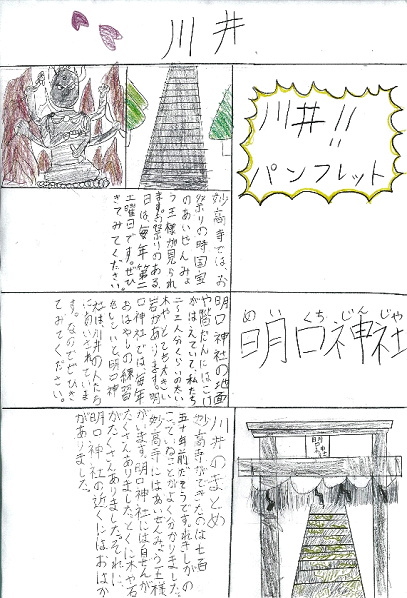 川井
川井!!
パンフレット
妙高寺では、お
祭りの時国宝
のあいぜんみょ
う王様が見られ
ます。お祭りのある
日は、毎年第二
土曜日です。ぜひ
きてみてください。
めいくちじんじゃ
明口神社
明口神社の地面
や階だんにはこけ
がはえていて、私たち
二～三人分くらいの太い
木やとても大きい
岩があります。明
口神社では、毎年
おはやしの練習
をしていて、明口神
社は、川井の人たち
に
すなのでぜひき
てみてください。
川井のまとめ
妙高寺ができたのは七百
五十年前だそうです。れきしがの
こっていることがよく分かりました。
妙高寺にはあいぜんみょう王様
がいます。明口神社には自ぜんが
たくさんありました。とくに木や石
がたくさんありました。それに、
明口神社の近くにはおはか
がありました。